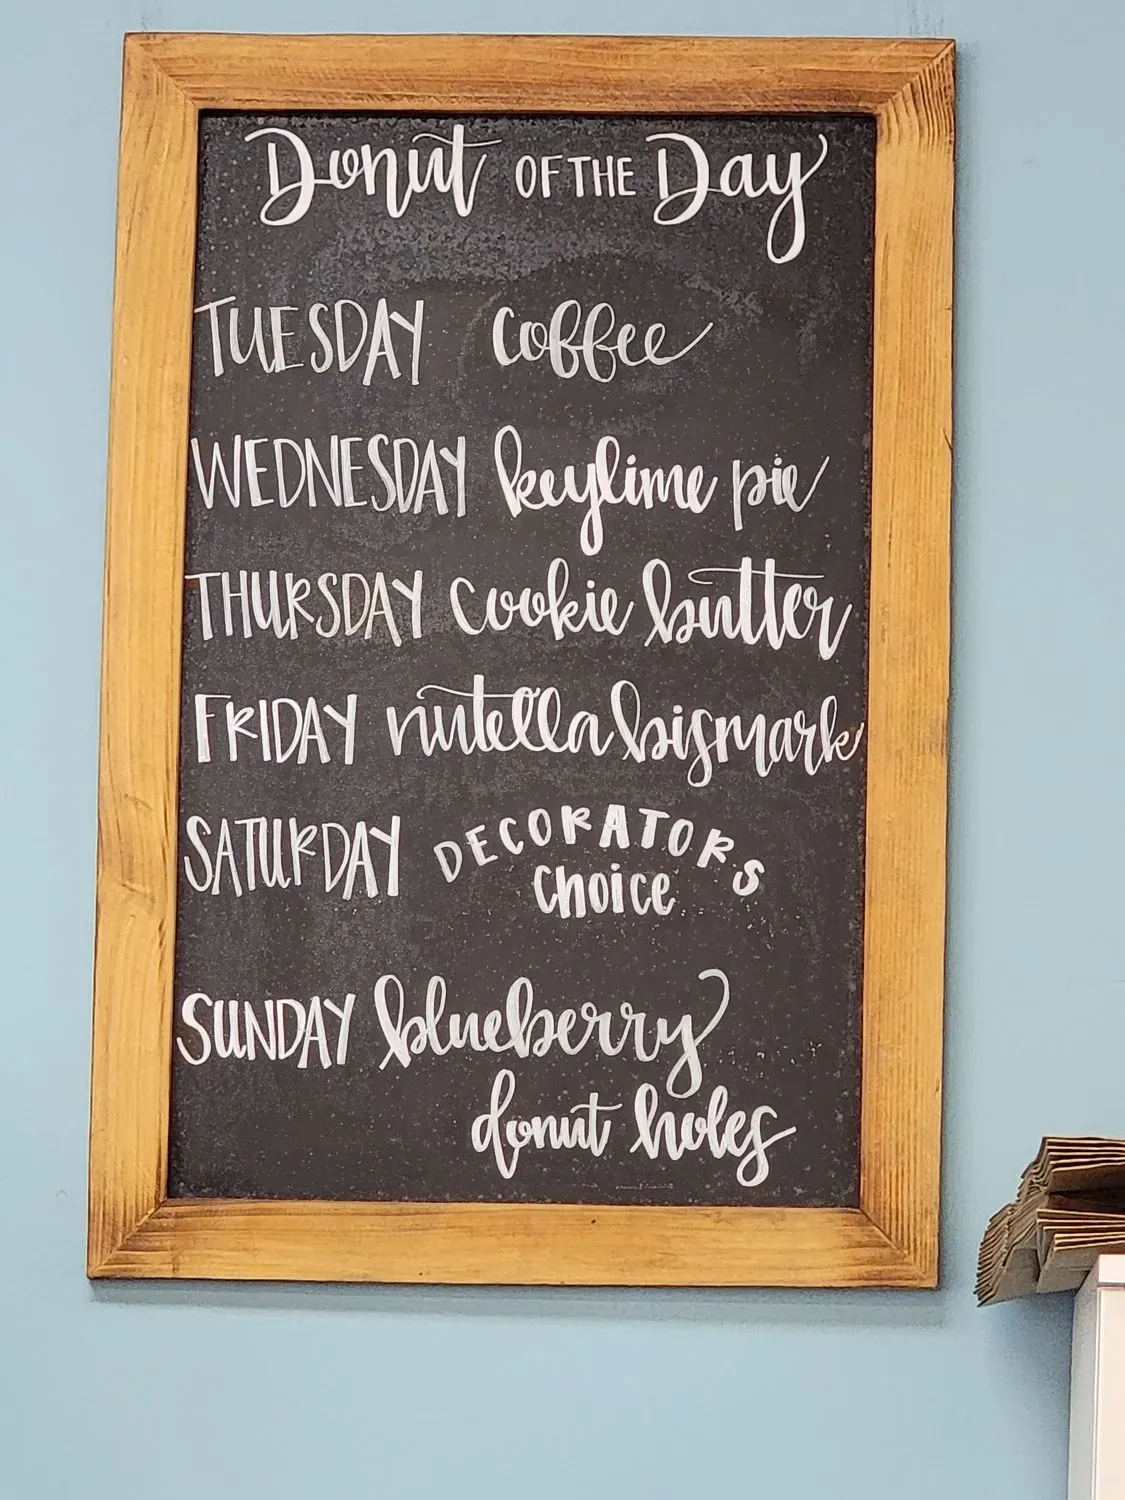 Donut OF THE Day
TUESDAY coffee
WEDNESDAY keylime pie
THURSDAY cookie butter
FRIDAY nutella bismark
SATURDAY DECORATORS
choice
SUNDAY blueberry
donut holes